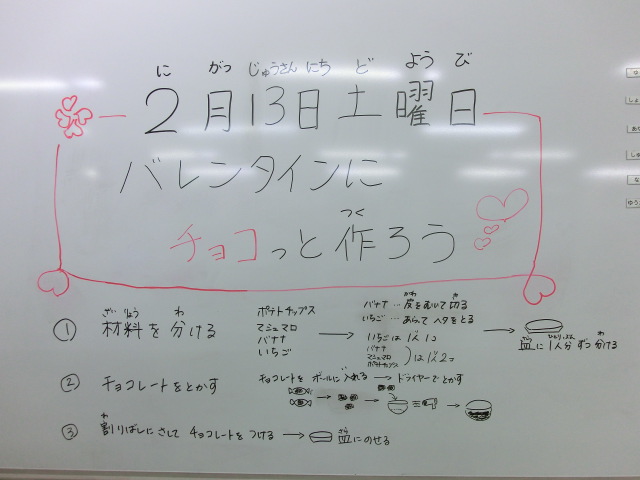 にがつじゅうさんにちどようび
2月13日土曜日
バレンタインに
つく
チョコっと作ろう
① ざいりょう わ
材料を分ける
ポテトチップス
マシュマロ
バナナ
いちご
→
バナナ…皮をむいて切る
かわ き
いちご…あらってヘタをとる
いちごは1人1コ
バナナ
マシュマロ
ポテトチップス
)は1人2コ
→
さら ひとりぶん わ
皿に1人分ずつ分ける
② チョコレートをとかす
チョコレートをボールに入れる→ドライヤーでとかす
い
③ わ
割りばしにさしてチョコレートをつける→
さら
皿にのせる